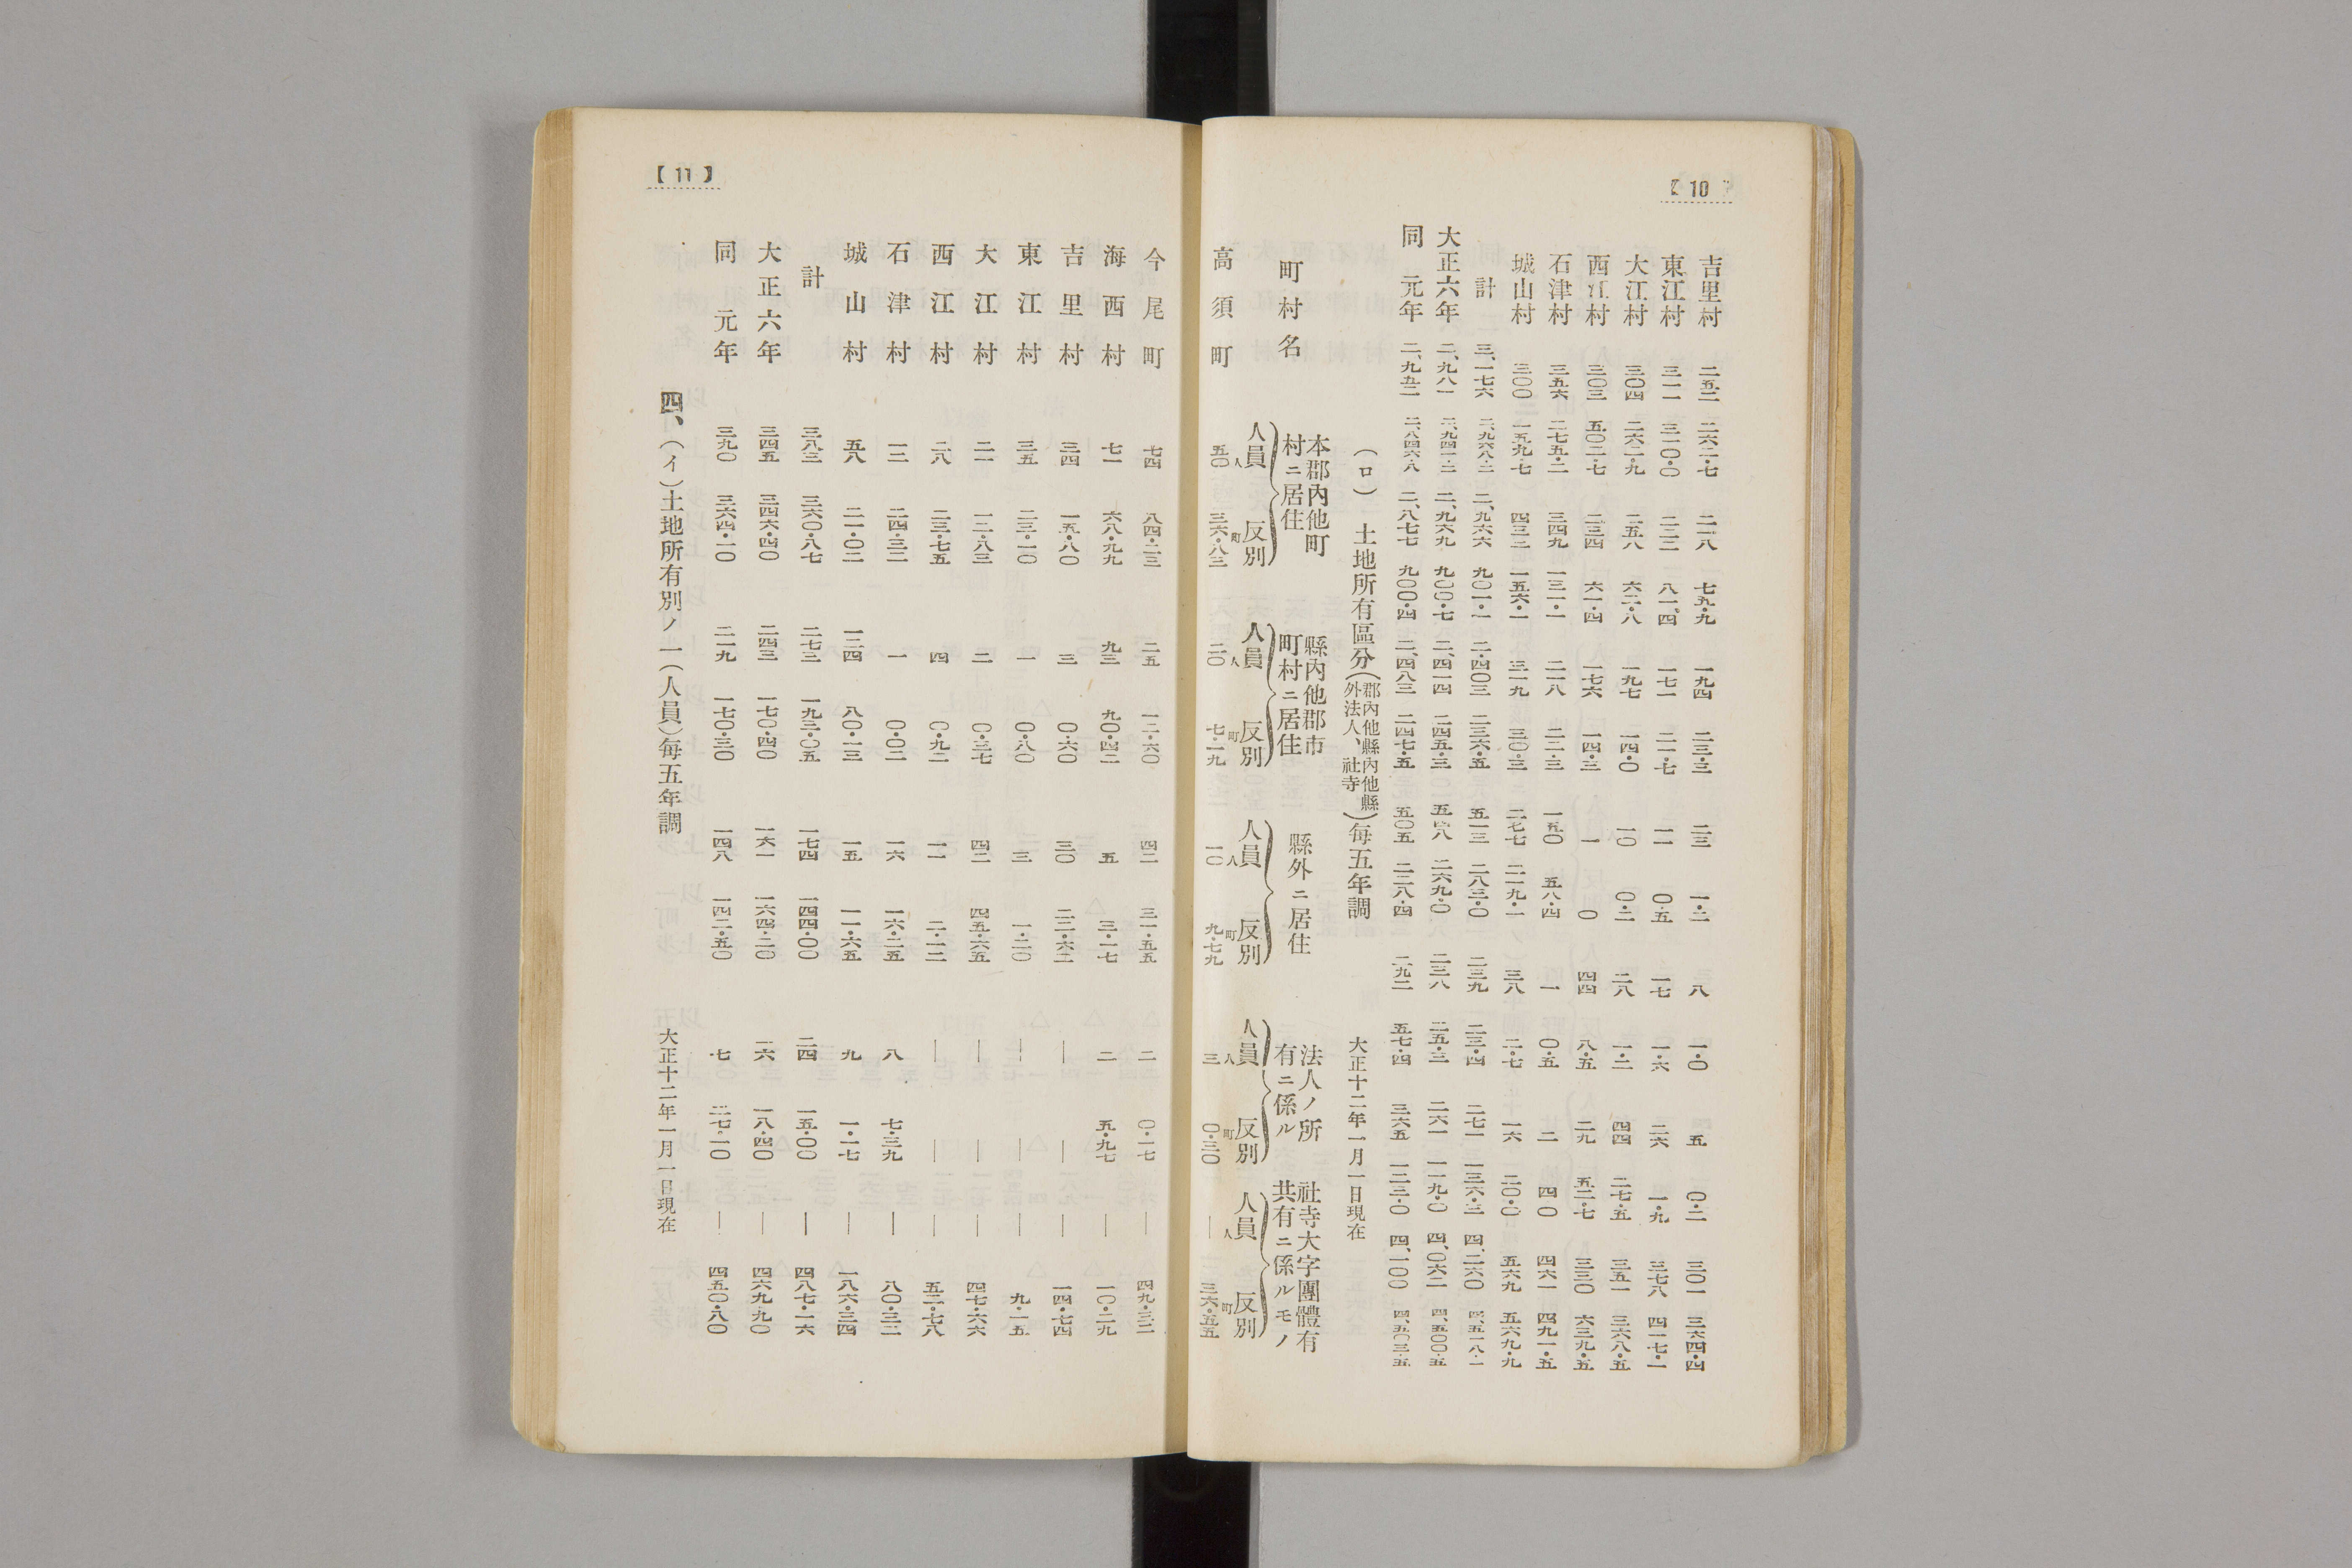 【10】
吉里村 二五二 二六二・七 二一八 七九・九 一九四 二三・三 二三 一・二 八 一・〇 五 〇・二 三〇一 三六四・四
東江村 三一一 三一〇・〇 二二二 八一・四 一七一 二一・七 一一 〇・五 一七 一・六 二六 一・九 三七八 四一七・一
大江村 三〇四 二六二・九 二五八 六二・八 一九七 一四・〇 一〇 〇・二 二八 一・二 四四 二七・五 三五一 三六八・五
西江村 三〇三 五〇二・七 二三四 六一・四 一七六 一四・三 一 〇 四四 八・五 二九 五二・七 三三〇 六三九・五
石津村 三五六 二七五・二 三四九 一三一・一 二一八 二二・三 一五〇 五八・四 一 〇・五 二 四〇 四六一 四九一・五
城山村 三〇〇 一五九・七 四三二 一五六・一 三一九 三〇・三 二七七 二一九・一 三八 二・七 一六 二〇・〇 五六九 五六九・九
計 三、一七六 二、九六八・二 二、九六六 九〇一・一 二・四〇三 二三六・五 五一三 二八三・〇 二三九 二三・四 二七一 一三六・三 四、二六〇 四、五一八・一
大正六年 二、九八一 二、九四一・二 二、九六九 九〇〇・七 二、四一四 二四五・三 五四八 二六九・〇 二三八 二五・三 二六一 一一九・〇 四、〇六二 四、五〇〇・五
同 元年 二、九五二 二、八四六・八 二、八七七 九〇〇・四 二、四八三 二四七・五 五〇五 二三八・四 二九二 五七・四 三六五 一二三・〇 四、一〇〇 四、五〇三・五
（ロ） 土地所有區分（郡內他縣內他縣外法人、社寺）每五年調 大正十二年一月一日現在
町村名 本郡內他町村ニ居住 縣內他郡市町村ニ居住 縣外ニ居住 法人ノ所有ニ係ル 社寺大字團體有共有ニ係ルモノ
人員 反別 人員 反別 人員 反別 人員 反別 人員 反別
高須町 五〇人 三六・八三町 二〇人 七・一九町 一〇人 九・七九町 三人 〇・三〇町 ―人 三六・五五町
【11】
今尾町 七四 八四・二三 二五 一二・六〇 四二 三一・五五 二 〇・一七 ― 四九・三二
海西村 七一 六八・九九 九三 九〇・四二 五 三・一七 二 五・九七 ― 一〇・二九
吉里村 三四 一五・八〇 三 〇・六〇 三〇 二二・六二 ― ― ― 一四・七四
東江村 三五 二三・一〇 一 〇・八〇 三 一・二〇 ― ― ― 九・一五
大江村 二一 一二・八三 二 〇・三七 四二 四五・六五 ― ― ― 四七・六六
西江村 二八 二三・七五 四 〇・九二 一一 二・二二 ― ― ― 五二・七八
石津村 一二 二四・三二 一 〇・〇二 一六 一六・二五 八 七・三九 ― 八〇・三二
城山村 五八 二一・〇二 一二四 八〇・一三 一五 一一・六五 九 一・一七 ― 一八六・三四
計 三八三 三六〇・八七 二七三 一九三・〇五 一七四 一四四・〇〇 二四 一五・〇〇 ― 四八七・一六
大正六年 三四五 三四六・四〇 二四三 一七〇・四〇 一六一 一六四・二〇 二六 一八・四〇 ― 四六九・九〇
同 元年 三九〇 三六四・一〇 二一九 一七〇・三〇 一四八 一四二・五〇 七 二七・一〇 ― 四五〇・八〇
四、（イ）土地所有別ノ一（人員）每五年調 大正十二年一月一日現在